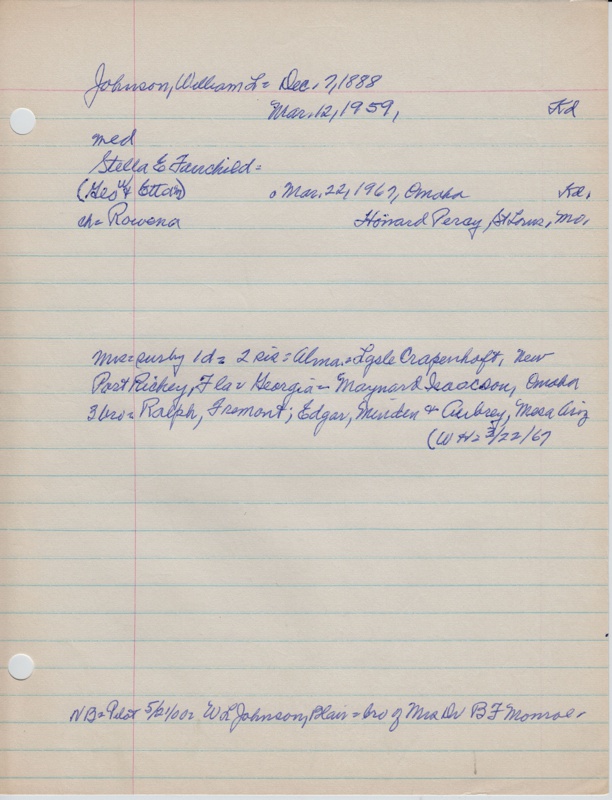 Johnson, William L = Dec. 7, 1888
Mar. 12, 1959, Kd
med
Stella E Fairchild =
(Geo & Etta's) Mar. 22, 1967, Omaha Kd.
ch = Rowena Howard Percy, St Louis, Mo.
Mrs = survby 1d = 2 sis = Alma = Lysle Crapenhoft, New
Port Richey, Fla & Georgia = Maynard Isaacson, Omaha
3 bro = Ralph, Fremont; Edgar, Minden & Aubrey, Mesa Ariz
(WH = 3/22/67
NB = Pilot W L Johnson, Blair = bro of Mrs Dr B F Monroe.